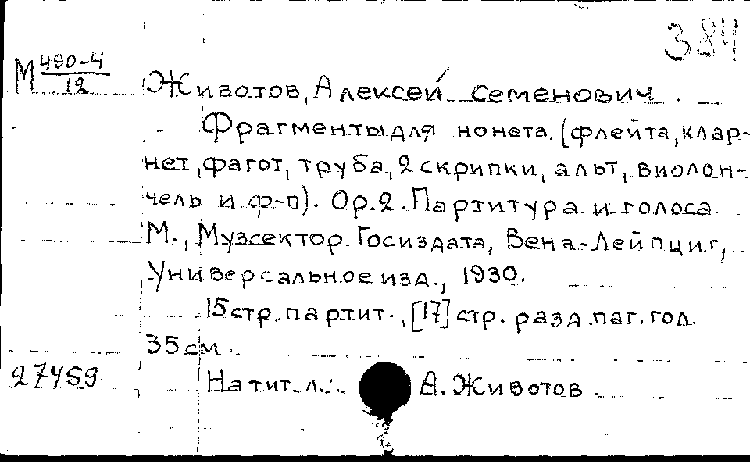 384
М 490-4
12
Животов, Алексей Семенович.
Фрагменты для нонета. (флейта, клар-
нет, фагот, труба, 2 скрипки, альт, виолон-
чель и ф-п). Ор. 2. Партитура и голоса
М., Музсектор Госиздата, Вена-Лейпциг,
Универсальное изд., 1930.
15 стр. партит., [17] стр. разд. паг. гол.
35 см.
27459
На тит. л.: А. Животов